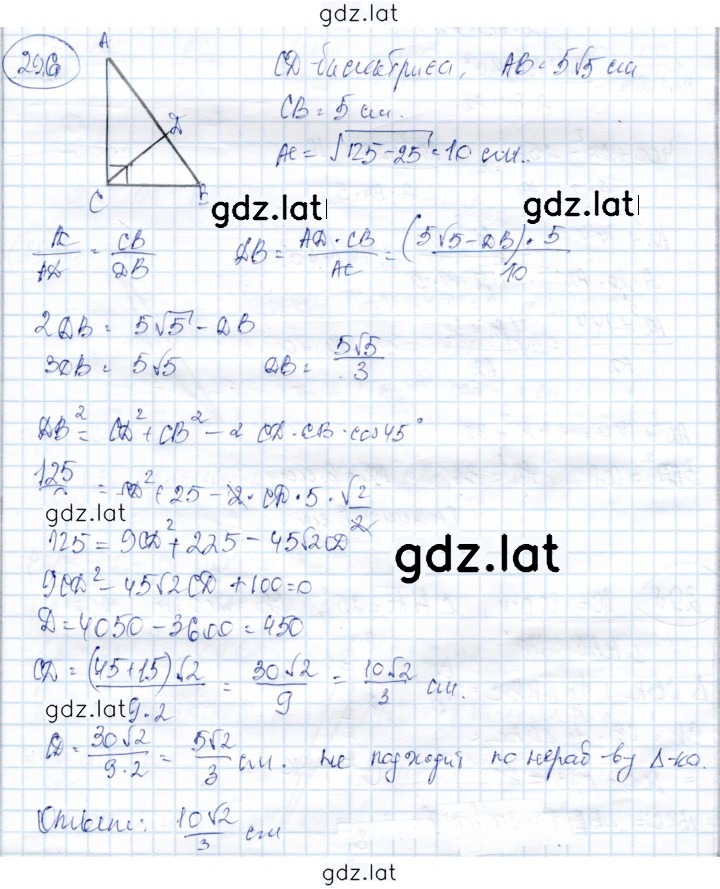 gdz.lat
296
A
D
C
B
CD-биссектриса, AB = 5√5 см
CB = 5 см.
AC = √125-25 = 10 см.
gdz.lat
gdz.lat
AC/AD = CB/DB DB = AD·CB/AC = (5√5-DB)·5/10
2DB = 5√5 - DB
3DB = 5√5 DB = 5√5/3
DB² = CD² + CB² - 2 CD·CB·cos45°
125/9 = CD² + 25 - 2·CD·5·√2/2
gdz.lat
125 = 9CD² + 225 - 45√2CD
gdz.lat
9CD² - 45√2CD + 100=0
D = 4050 - 3600 = 450
CD = (45+15)√2/9·2 = 30√2/9 = 10√2/3 см.
gdz.lat
CD = 30√2/9·2 = 5√2/3 см. не подходит по нерав-ву Δ-ка.
Ответ: 10√2/3 см
gdz.lat